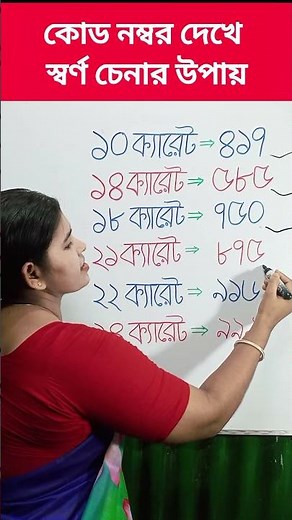 কোড নম্বর দেখে
স্বর্ণ চেনার উপায়
১০ ক্যারেট ⇒ ৪১৭
১৪ ক্যারেট ⇒ ৫৮৫
১৮ ক্যারেট ⇒ ৭৫০
২১ ক্যারেট ⇒ ৮৭৫
২২ ক্যারেট ⇒ ৯১৬
ক্যারেট ⇒